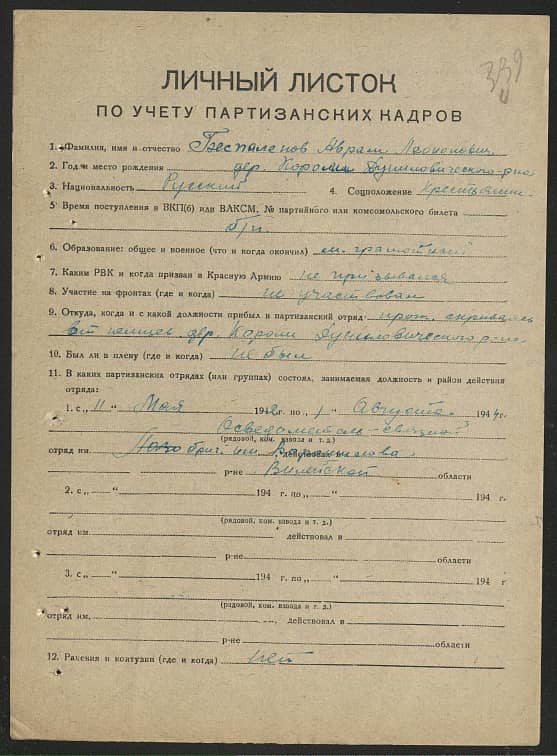 339
ЛИЧНЫЙ ЛИСТОК
ПО УЧЕТУ ПАРТИЗАНСКИХ КАДРОВ
1. Фамилия, имя и отчество Беспаленов Аврам
2. Год и место рождения дер. Короли Дуниловического р-на
3. Национальность Русский 4. Соцположение Крестьянин
5 Время поступления в ВКП(б) или ВЛКСМ, № партийного или комсомольского билета
б/п.
6. Образование: общее и военное (что и когда окончил) м. грамотный
7. Каким РВК и когда призван в Красную Армию не призывался
8. Участие на фронтах (где и когда) не участвовал
9. Откуда, когда и с какой должности прибыл в партизанский отряд прож. скривался
от немцев дер. Короли Дуниловического р-на
10. Был ли в плену (где и когда) не был
11. В каких партизанских отрядах (или группах) состоял, занимаемая должность и район действия
отряда:
1. с „ 11 “ Мая 1942 г. по „ 1 “ Августа 1944 г.
Осведомитель-связной
(рядовой, ком. взвода и т. д.)
отряд им бриг. им Ворошилова действовал в
р-не Вилейской области
2. с „ — “ 194 г. по „ — “ 194 г.
(рядовой, ком. взвода и т. д.)
отряд им. действовал в
р-не области
3. с „ — “ 194 г. по „ — “ 194 г
(рядовой, ком. взвода и т. д.)
отряд им. действовал в
р-не области
12. Ранения и контузии (где и когда) нет